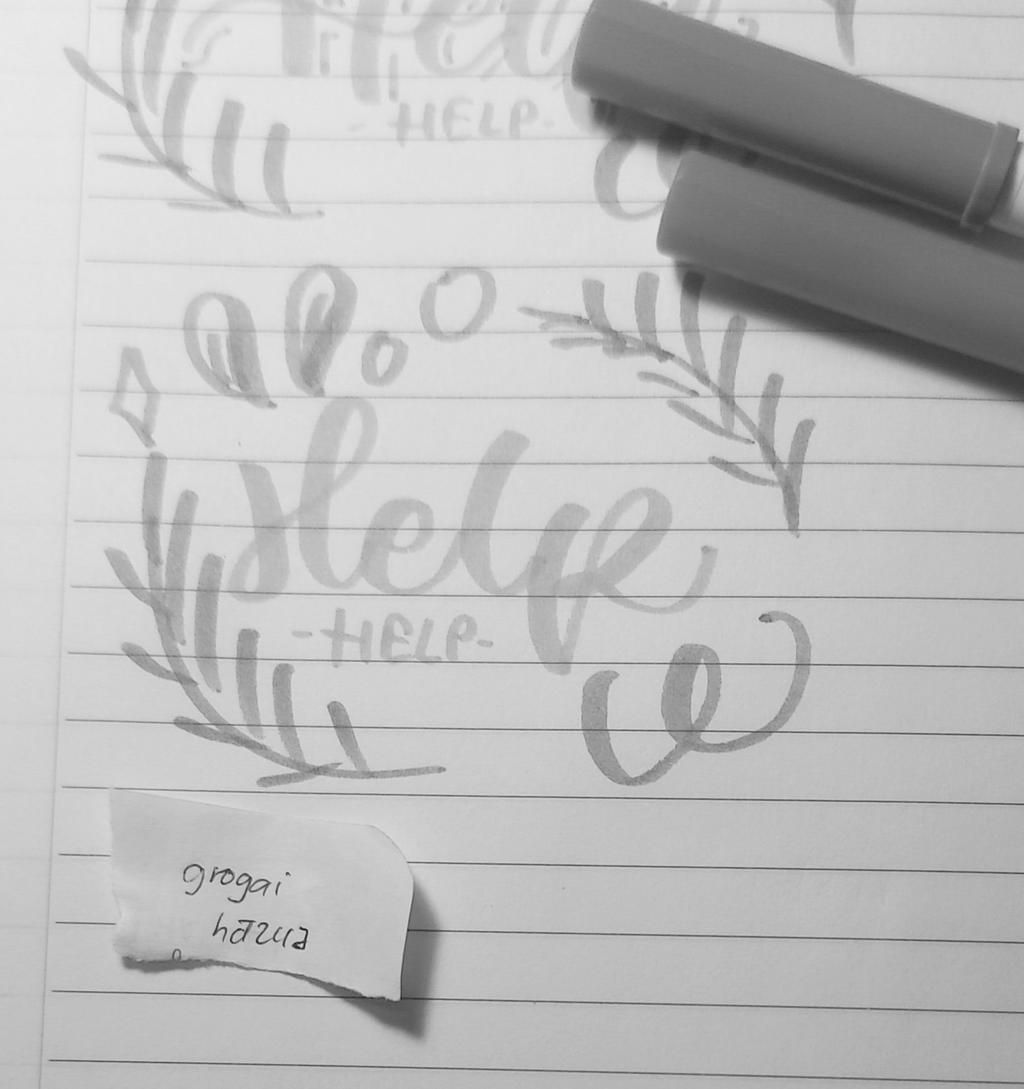 Help
-HELP-
Help
-HELP-
grogai
hazua